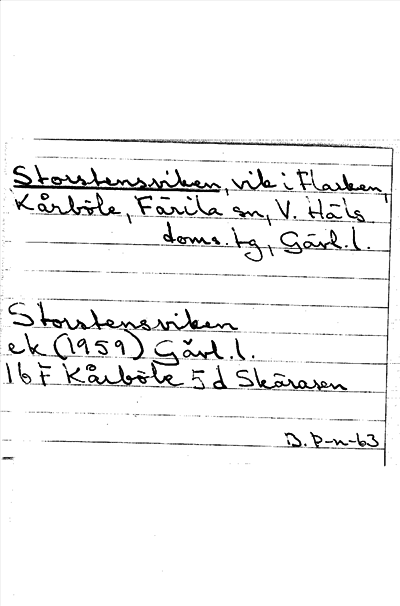 Storstensviken, vik i Flarken,
Kårböle, Färila sn, V. Häls
doms. tg, Gävl. l.
Storstensviken
ek (1959) Gävl. l.
16F Kårböle 5 d Skärasen
B. P-n-63